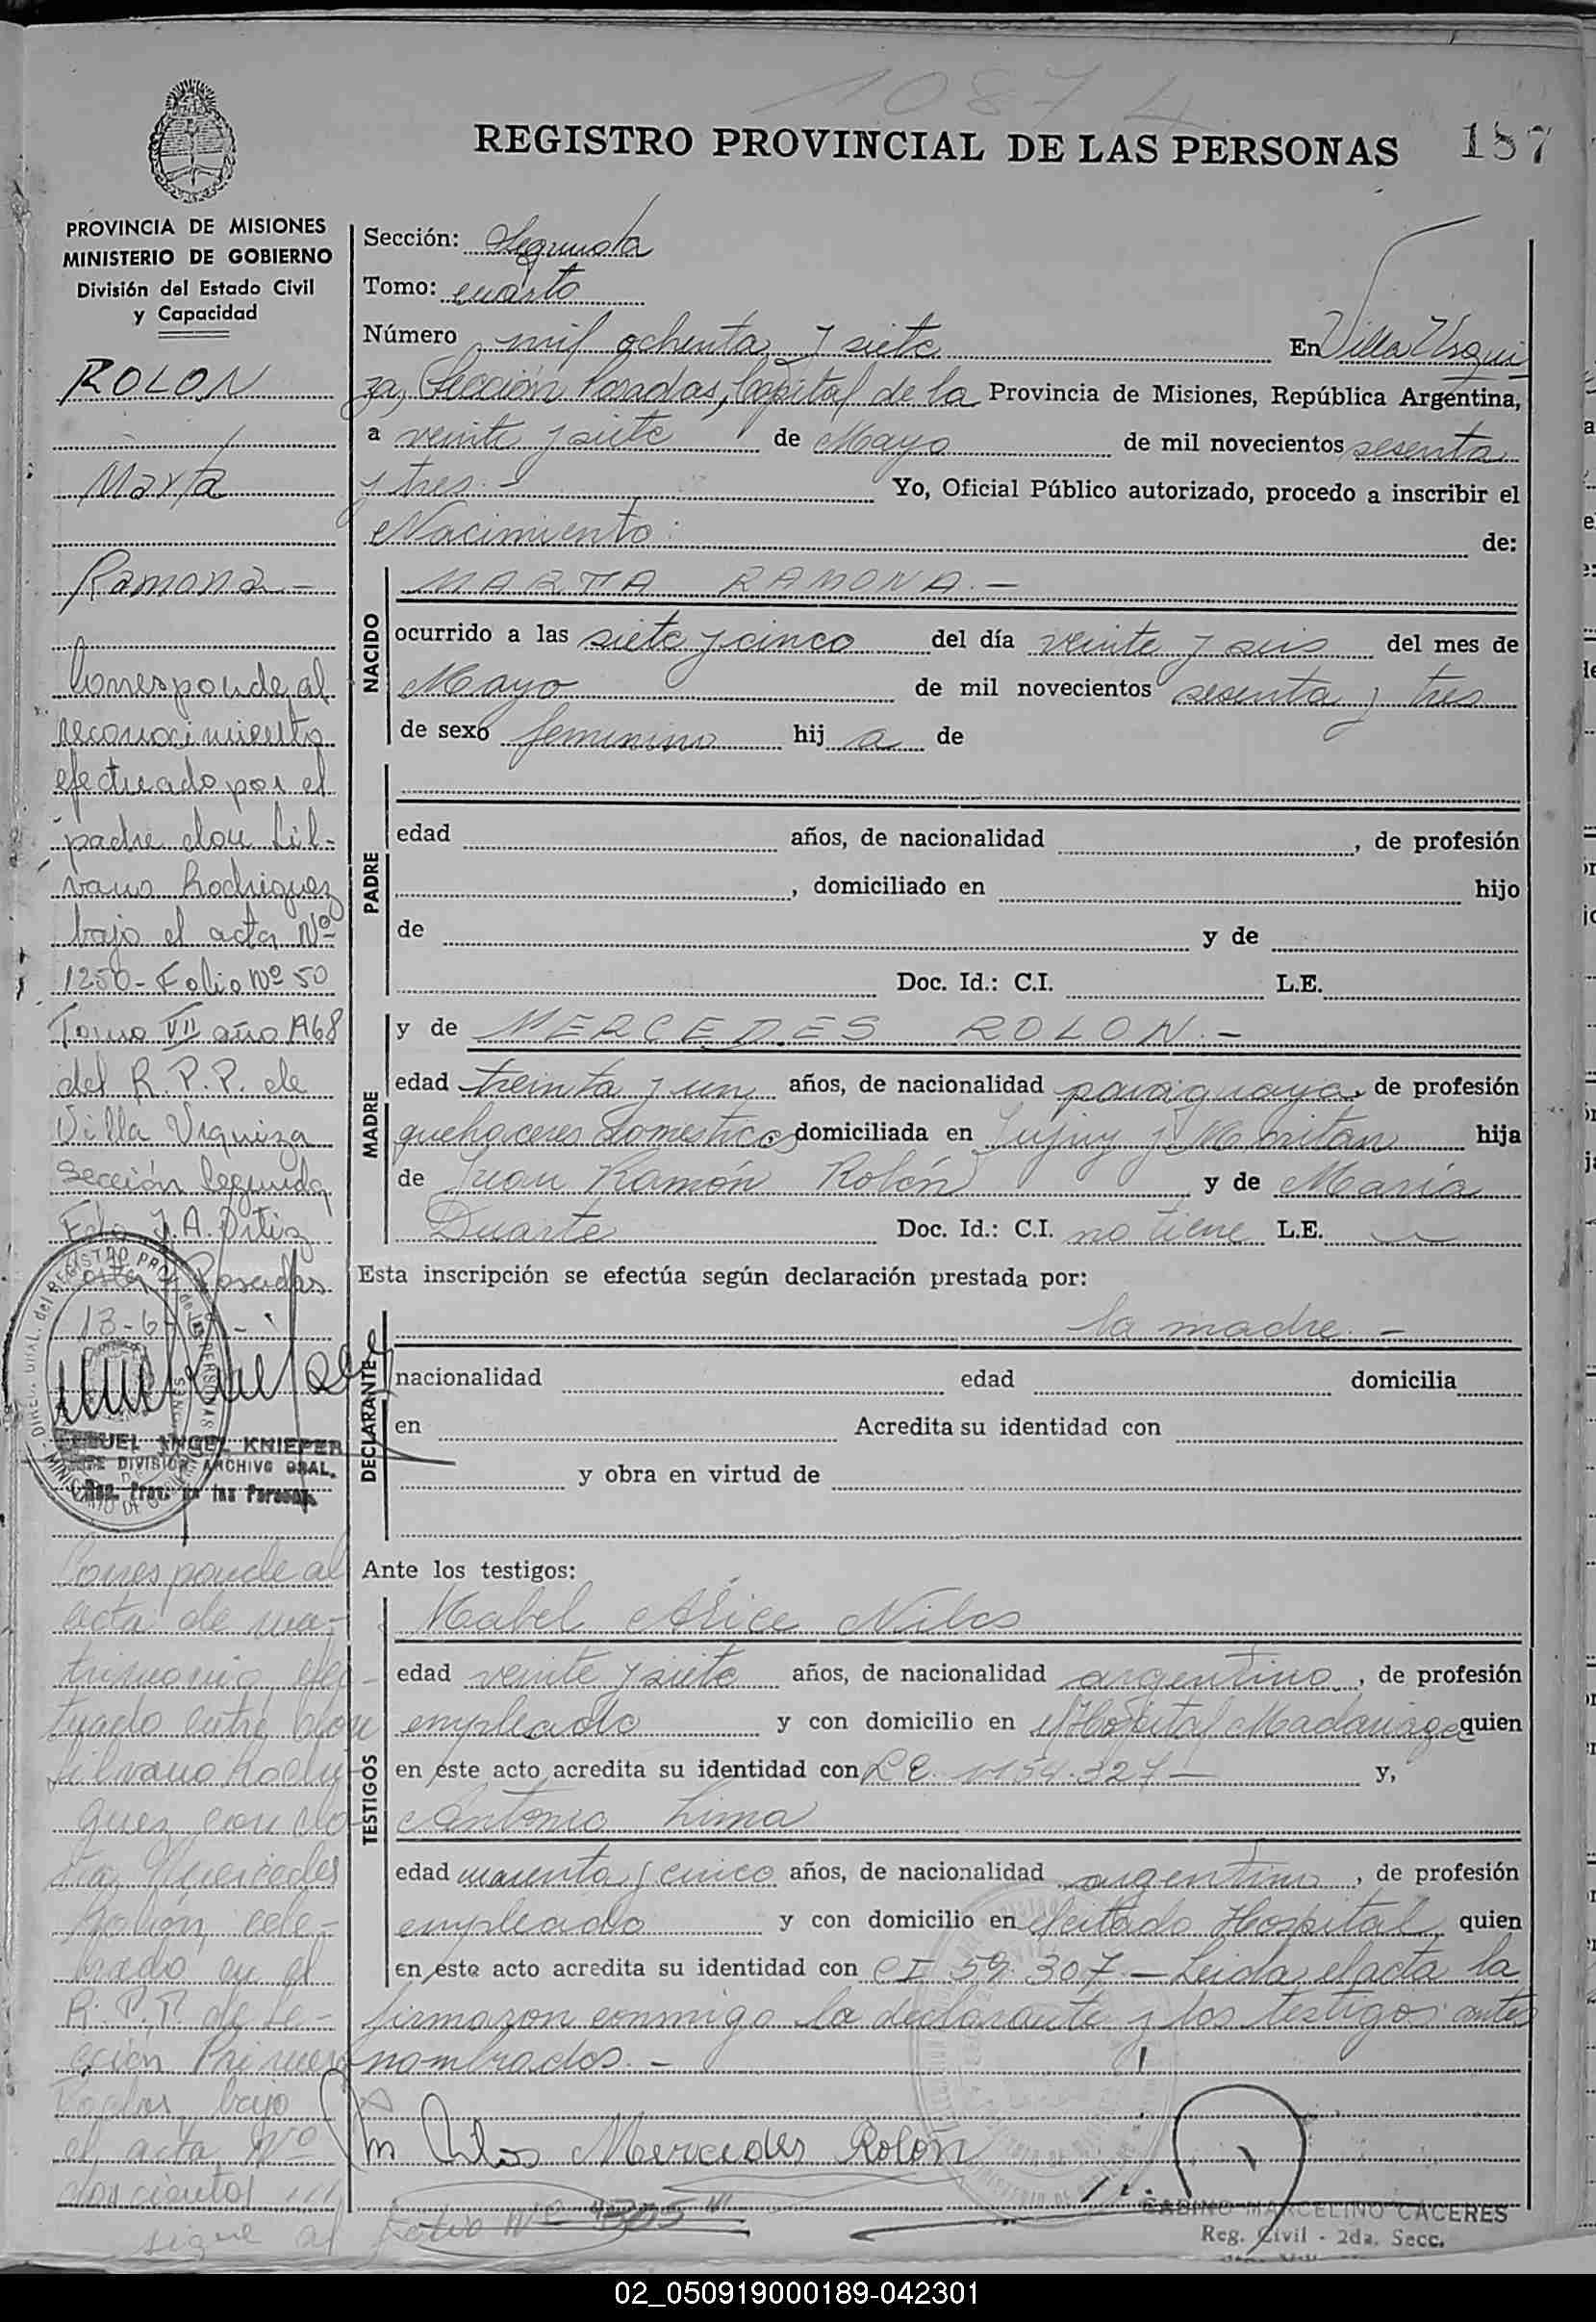 10874
REGISTRO PROVINCIAL DE LAS PERSONAS 187
PROVINCIA DE MISIONES
MINISTERIO DE GOBIERNO
División del Estado Civil
y Capacidad
ROLON
Marta
Ramona -
Corresponde al
reconocimiento
efectuado por el
padre don Sil-
vano Rodriguez
bajo el acta Nº
1250 - Folio Nº 50
Tomo VII año 1968
del R. P. P. de
Villa Urquiza
Sección Segunda
Fdo J. A. Ortiz
Posadas
ANGEL KNIEPER
DIVISION ARCHIVO GRAL.
Reg. Prov. de las Personas
Corresponde al
acta de ma-
trimonio efec-
tuado entre don
Silvano Rodri-
guez con do-
ña Mercedes
Rolón, cele-
brado en el
R. P. P. de Se-
cción Primera
Pdas, bajo
el acta Nº
doscientos
sigue al Folio Nº
Sección: Segunda
Tomo: cuarto
Número mil ochenta y siete En Villa Urqui
za, Sección Posadas, Capital de la Provincia de Misiones, República Argentina,
a veinte y siete de Mayo de mil novecientos sesenta
y tres.- Yo, Oficial Público autorizado, procedo a inscribir el
Nacimiento: de:
NACIDO
MARTA RAMONA.-
ocurrido a las siete y cinco del día veinte y seis del mes de
Mayo de mil novecientos sesenta y tres
de sexo femenino hij a de
PADRE
edad años, de nacionalidad , de profesión
, domiciliado en hijo
de y de
Doc. Id.: C.I. L.E.
MADRE
y de MERCEDES ROLON.-
edad treinta y un años, de nacionalidad paraguaya, de profesión
quehaceres domesticos domiciliada en Jujuy y hija
de Juan Ramón Rolón y de María
Duarte Doc. Id.: C.I. no tiene L.E.
Esta inscripción se efectúa según declaración prestada por:
DECLARANTE
la madre.-
nacionalidad edad domicilia
en Acredita su identidad con
y obra en virtud de
Ante los testigos:
TESTIGOS
Mabel Alice Nilos
edad veinte y siete años, de nacionalidad argentino, de profesión
empleado y con domicilio en el Hospital Madariaga quien
en este acto acredita su identidad con L E. 1154.327 - y,
Antonio Lima
edad cuarenta y cinco años, de nacionalidad argentino, de profesión
empleado y con domicilio en el citado Hospital quien
en este acto acredita su identidad con C I 59.307.- Leida el acta la
firmaron conmigo la declarante y los testigos antes
nombrados.-
Mercedes Rolon
GABINO MARCELINO CACERES
Reg. Civil - 2da. Secc.
02_050919000189-042301